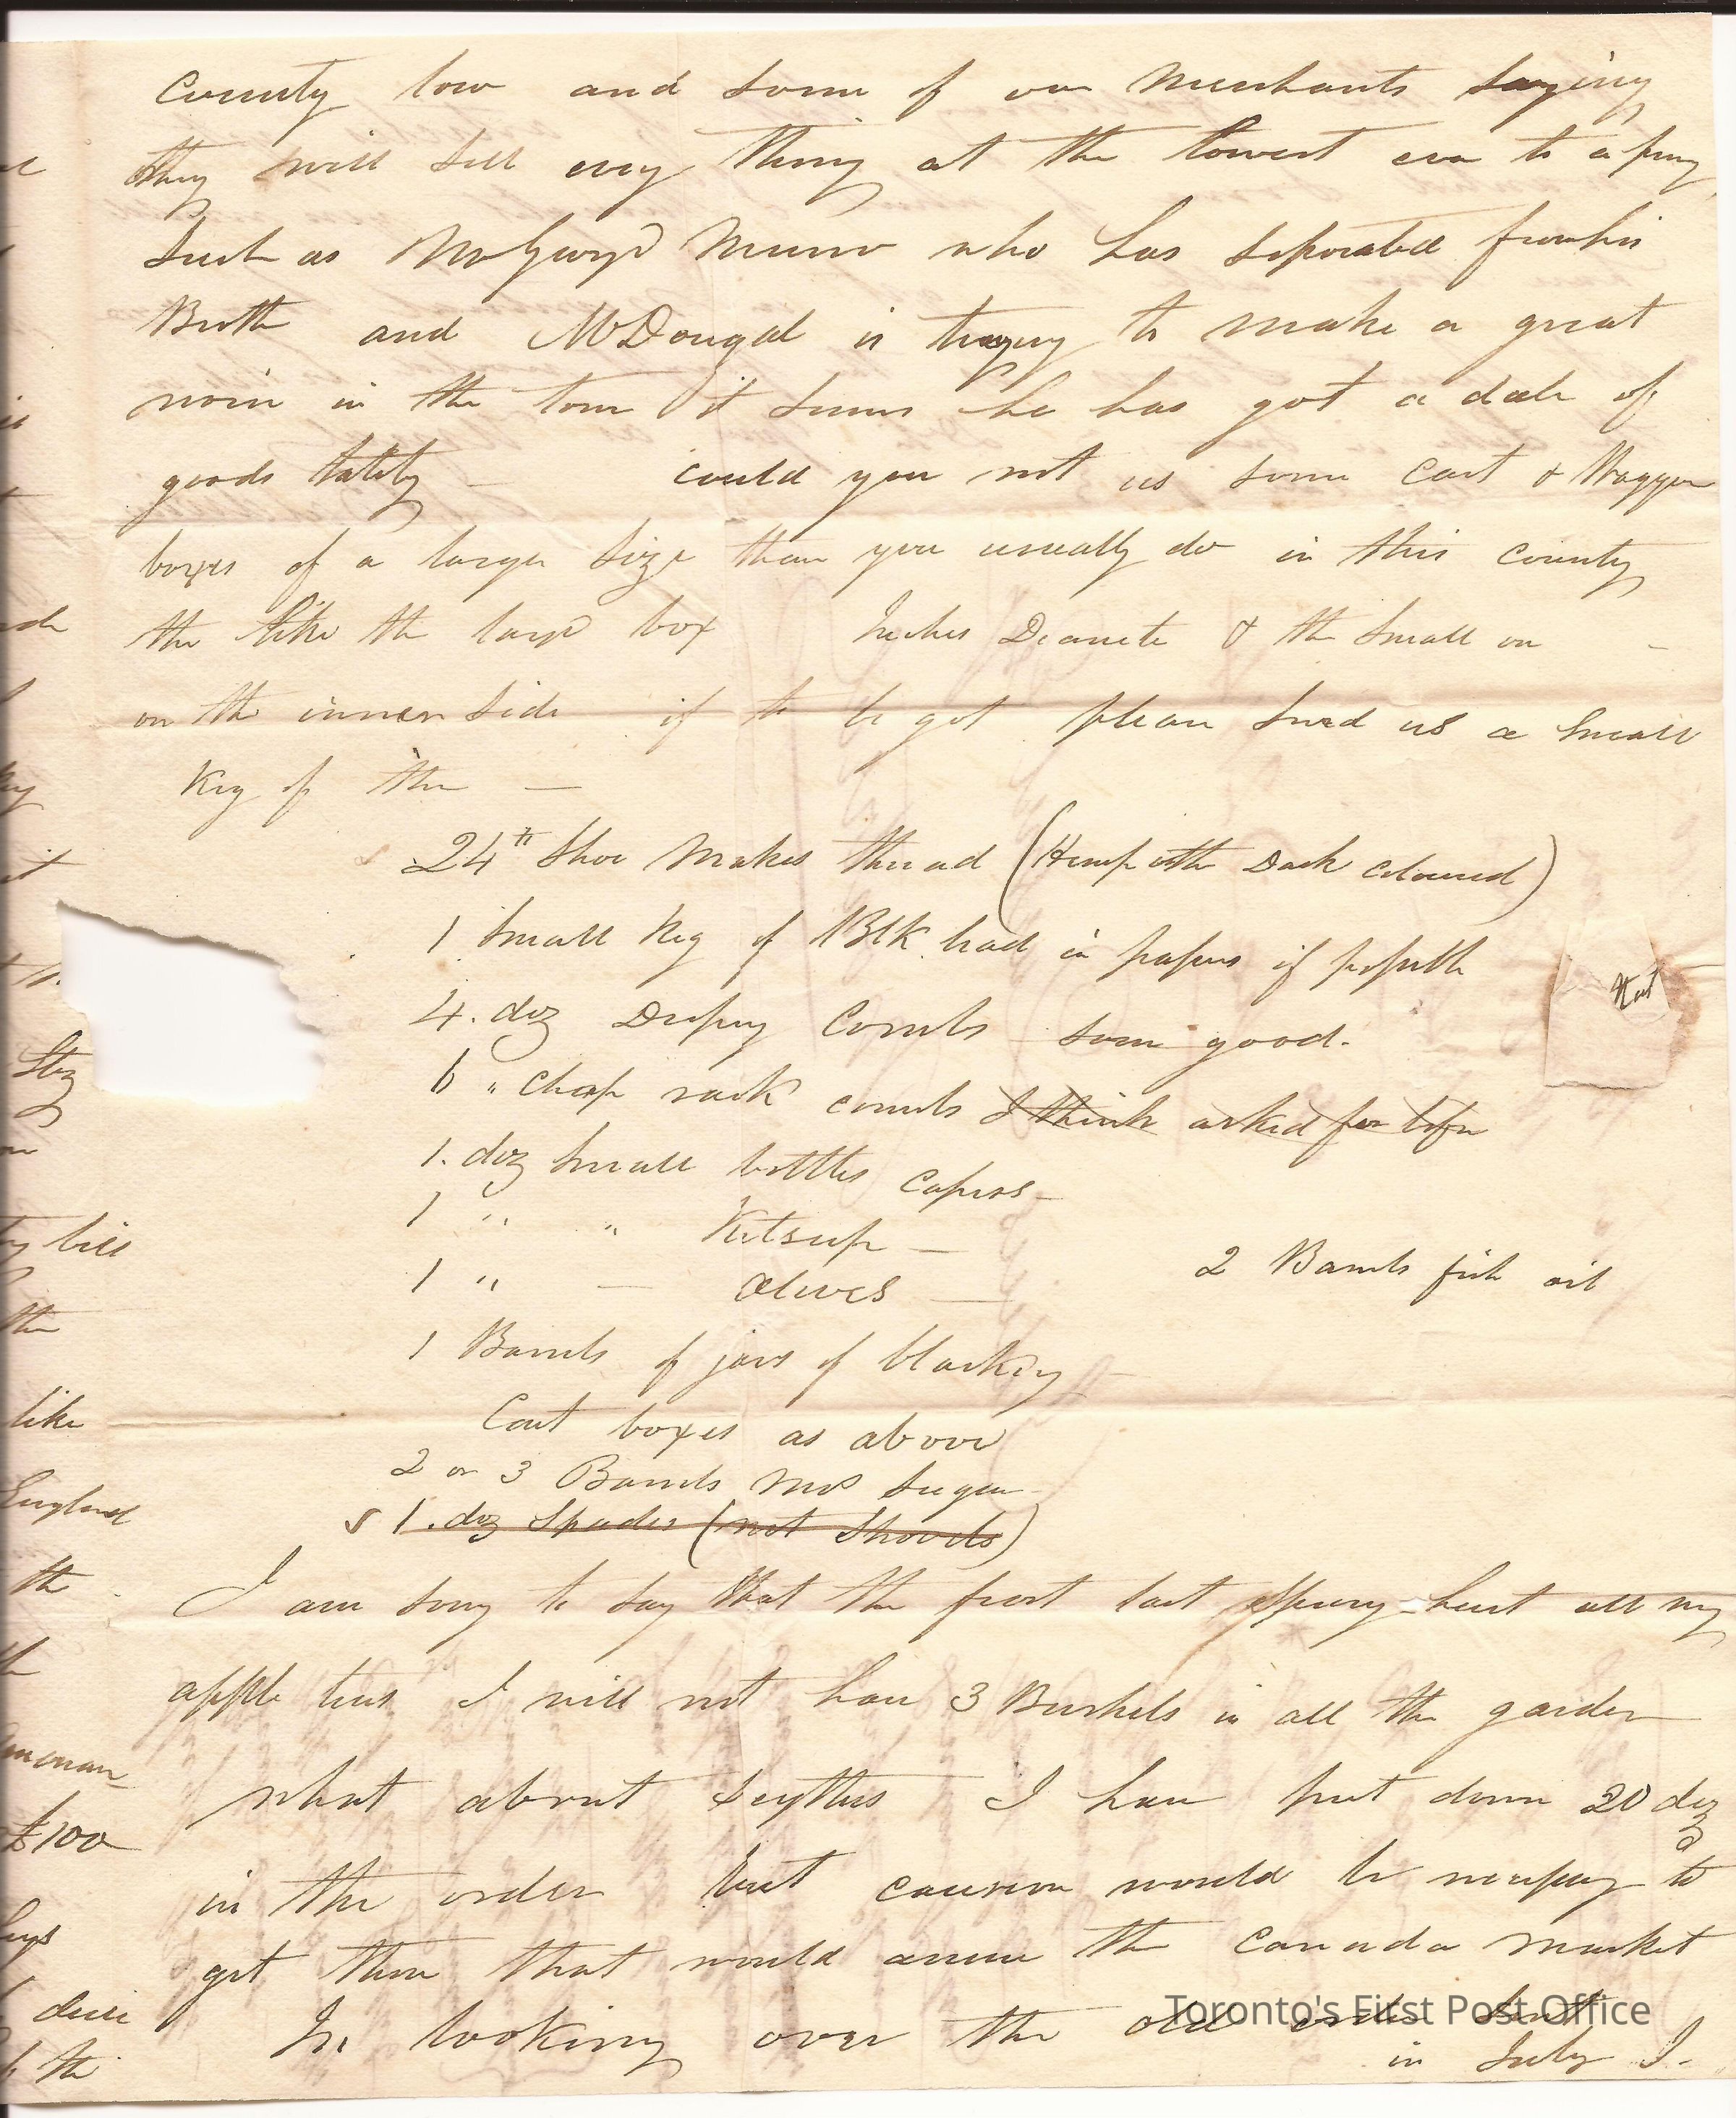 County low and some of our Merchants saying
they will sell every thing at the lowest even to a
Such as Mr Munro who has seperated from his
Broth and McDougal is trying to make a great
noise in the town it seems he has got a deale of
goods lately — could you not us some Cart & Waggon
boxes of a larger size than you usually do in this County
the like the large box Inches Diamete & the small on —
on the inner side if to be got please send us a small
Keg of them —
24 lb Shoe Makers thread (Hemp Dark coloured)
1 Small Keg of Blk lead in papers if possible
Kost
4. doz Combs some good.
6 " cheap rack combs I think asked for before
1. doz Small bottles capers —
1 " " Ketsup —
1 " — Olives —
2 Barrels fish oil
1 Barrels of jars of blacking —
Cart boxes as above
2 or 3 Barrels Mus Sugar
1. doz Spades (not Shovels)
I am sorry to say that the frost last spring hurt all my
apple trees I will not have 3 Bushels in all the garden
what about Scythes I have put down 20 doz
in the order but would be to
get them that would the Canada market
In looking over the old order sent
in July I.
Stez
bill
the
like
England
the
£100
the
Toronto's First Post Office